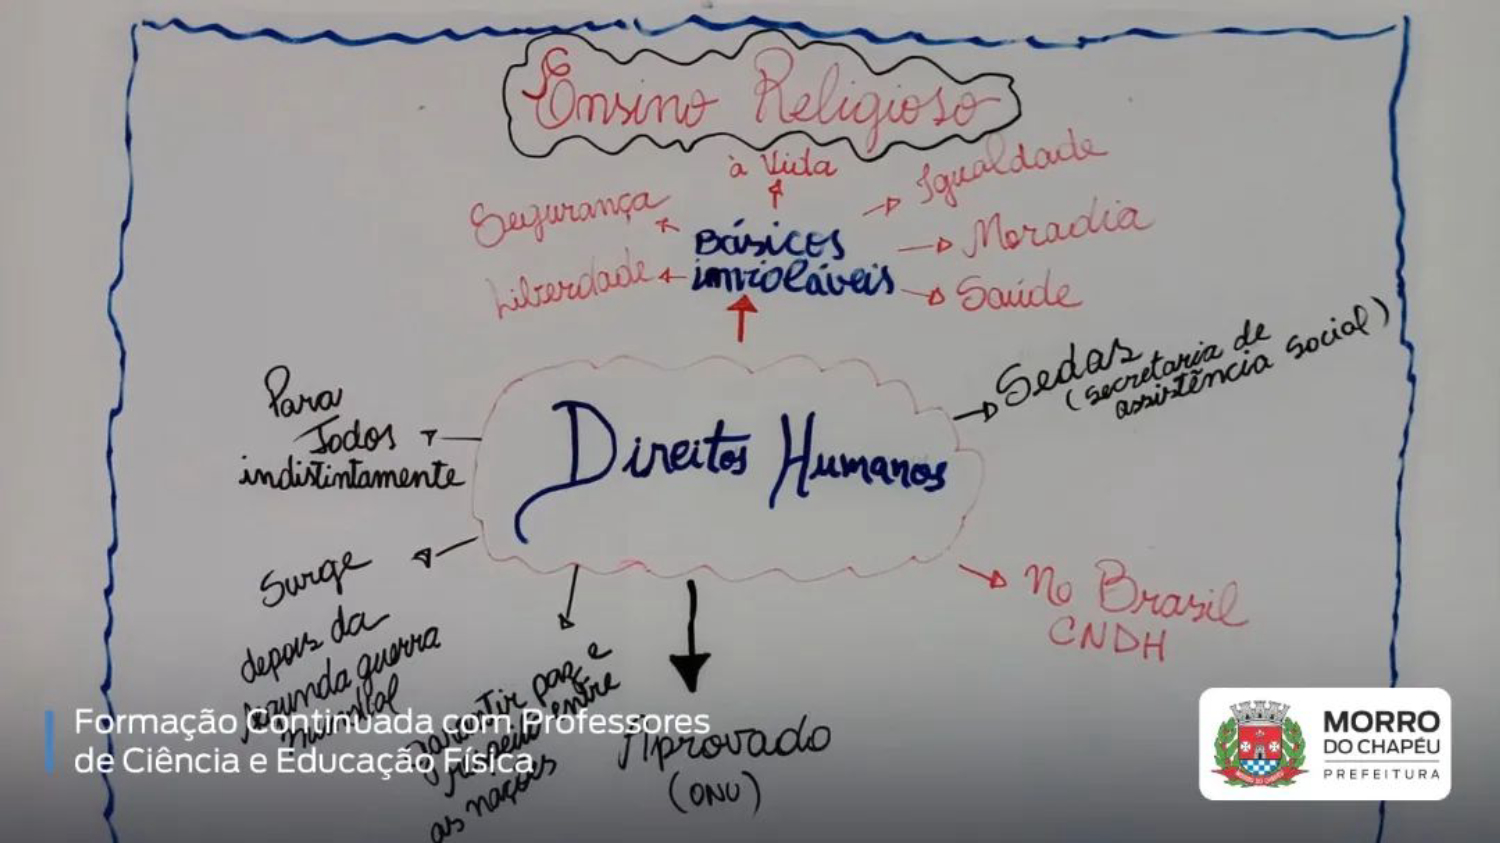 Ensino Religioso
à Vida
Igualdade
Segurança
Básicos
invioláveis
Moradia
Liberdade
Saúde
Sedas
(secretaria de
assistência social)
Para
Todos
indistintamente
Direitos Humanos
Surge
depois da
segunda guerra
mundial
garantir paz e
respeito entre
as nações
Aprovado
(ONU)
No Brasil
CNDH
Formação Continuada com Professores
de Ciência e Educação Física
MORRO
DO CHAPÉU
PREFEITURA